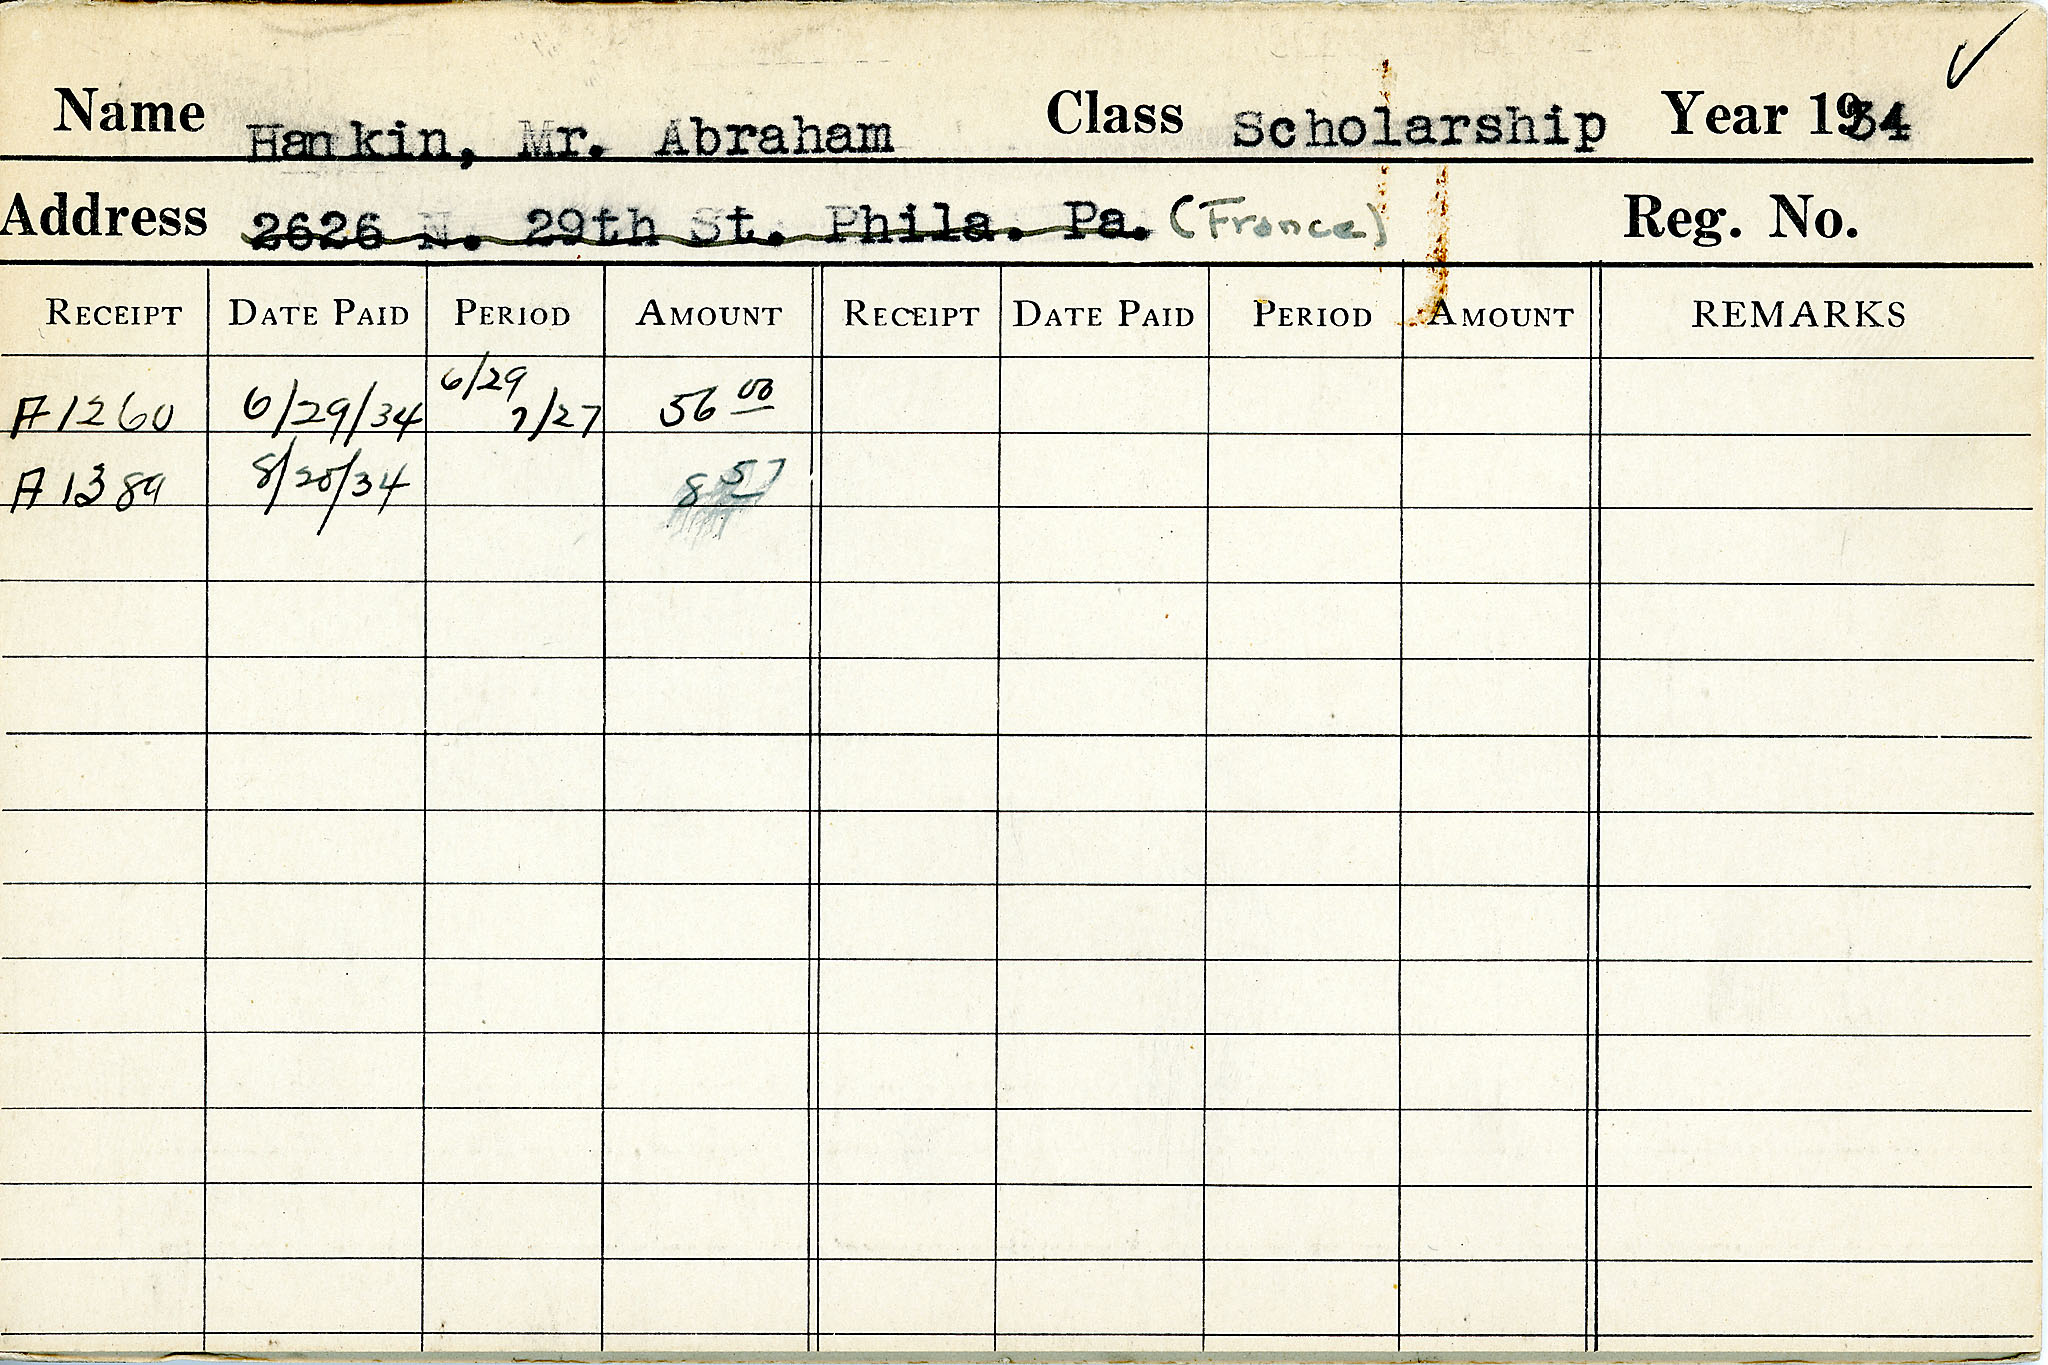 Name Hankin, Mr. Abraham Class Scholarship Year 1934
Address 2626 N. 29th St. Phila. Pa. (France) Reg. No.
RECEIPT DATE PAID PERIOD AMOUNT RECEIPT DATE PAID PERIOD AMOUNT REMARKS
6/29
A1260 6/29/34 7/27 56 00
A1389 8/20/34 8 57